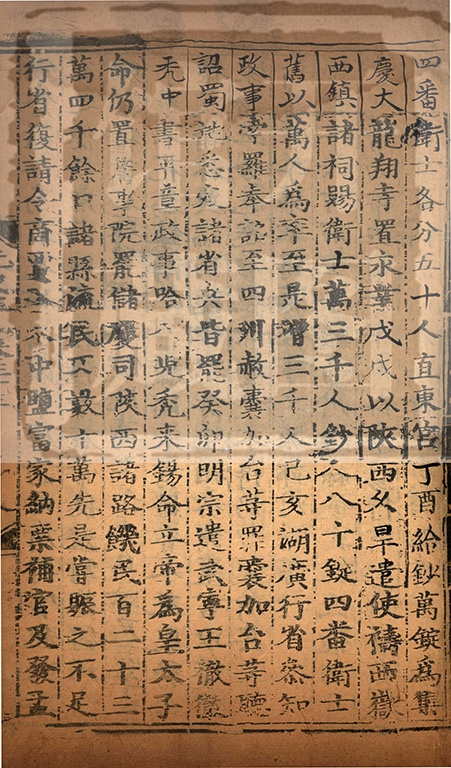 四番衛士各分五十人直東宮丁酉給鈔萬錠爲集
慶大龍翔寺置永業戊戌以陝西久旱遣使禱西嶽
西鎮諸祠賜衛士萬三千人鈔人八十錠四番衛士
舊以萬人爲率至是增三千人己亥湖廣行省參知
政事孛羅奉詔至四川赦囊加台等罪囊加台等聽
詔蜀地悉定諸省兵皆罷癸卯明宗遣武寧王徹徹
禿中書平章政事哈八兒禿來錫命立帝爲皇太子
命仍置詹事院罷儲慶司陝西諸路饑民百二十三
萬四千餘口諸縣流民又數十萬先是嘗賑之不足
行省復請令商賈入粟中鹽富家納粟補官及發孟